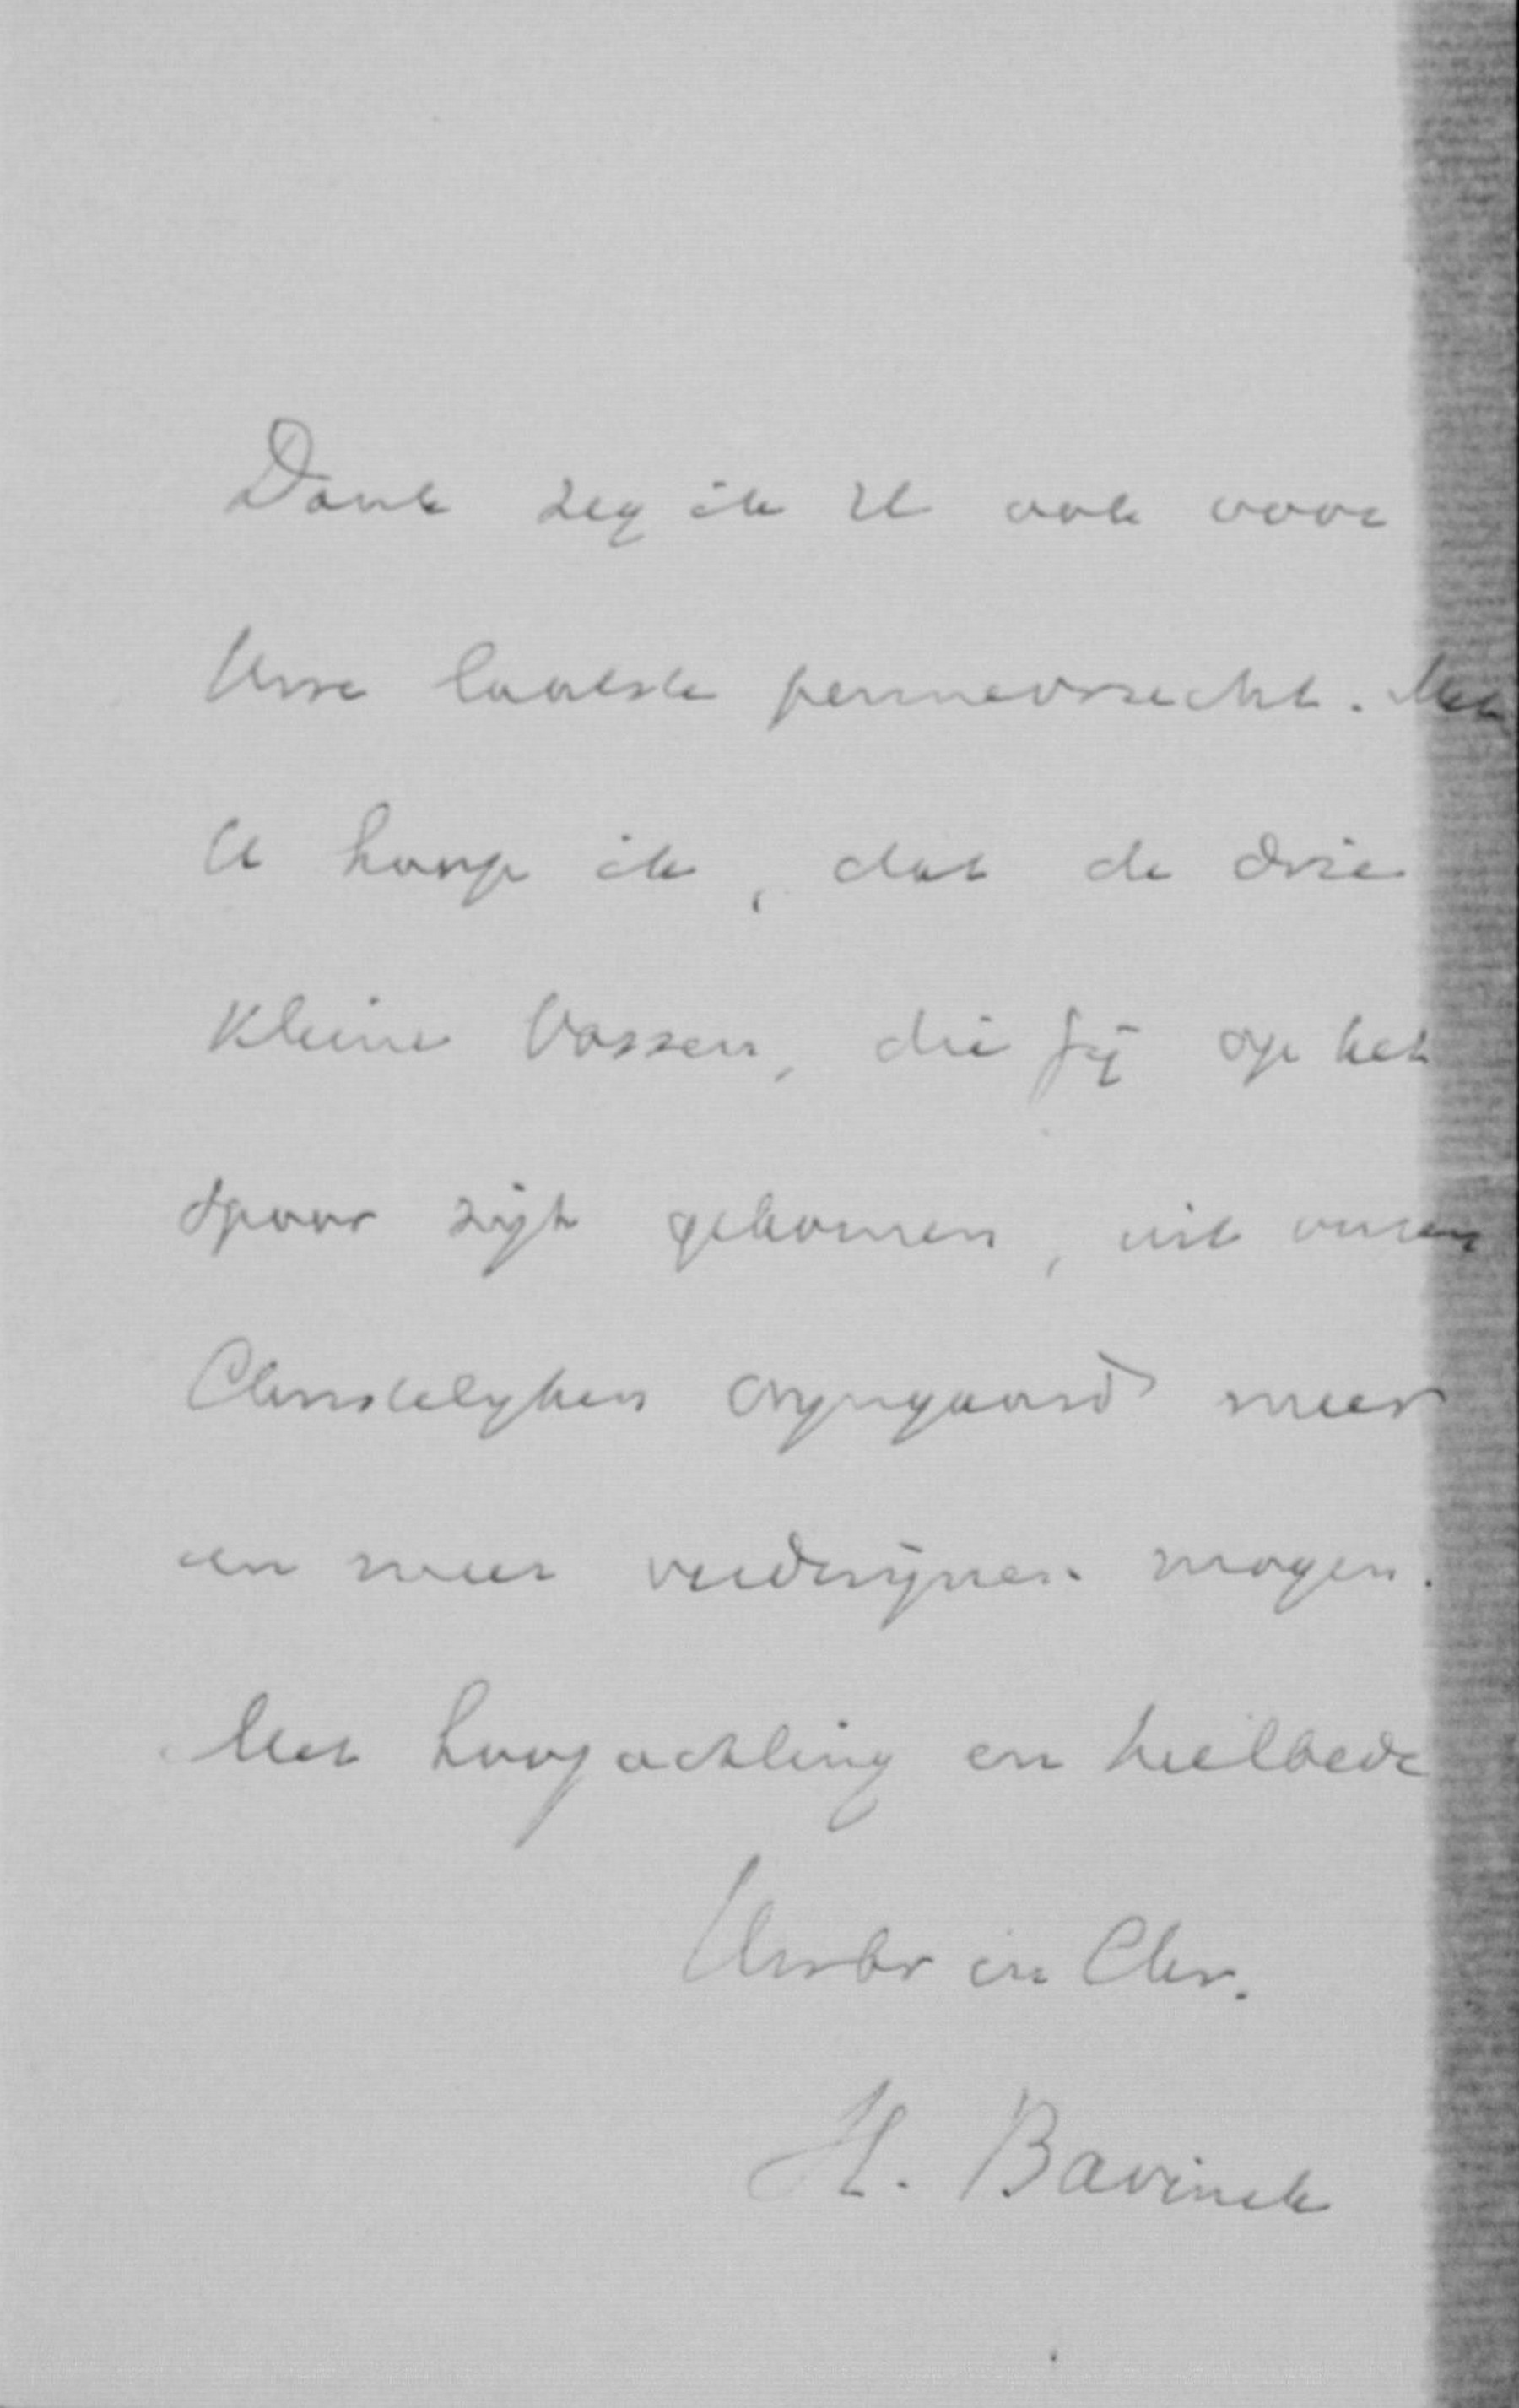 Dank zeg ik U ook voor
Uwe laatste pennevrucht. Met
U hoop ik, dat de drie
kleine Vossen, die Gij op het
spoor zijt gekomen, uit onzen
Christelijken wijngaard meer
en meer verdwijnen mogen.
Met hoogachting en heilbede
Uw br in Chr.
H. Bavinck